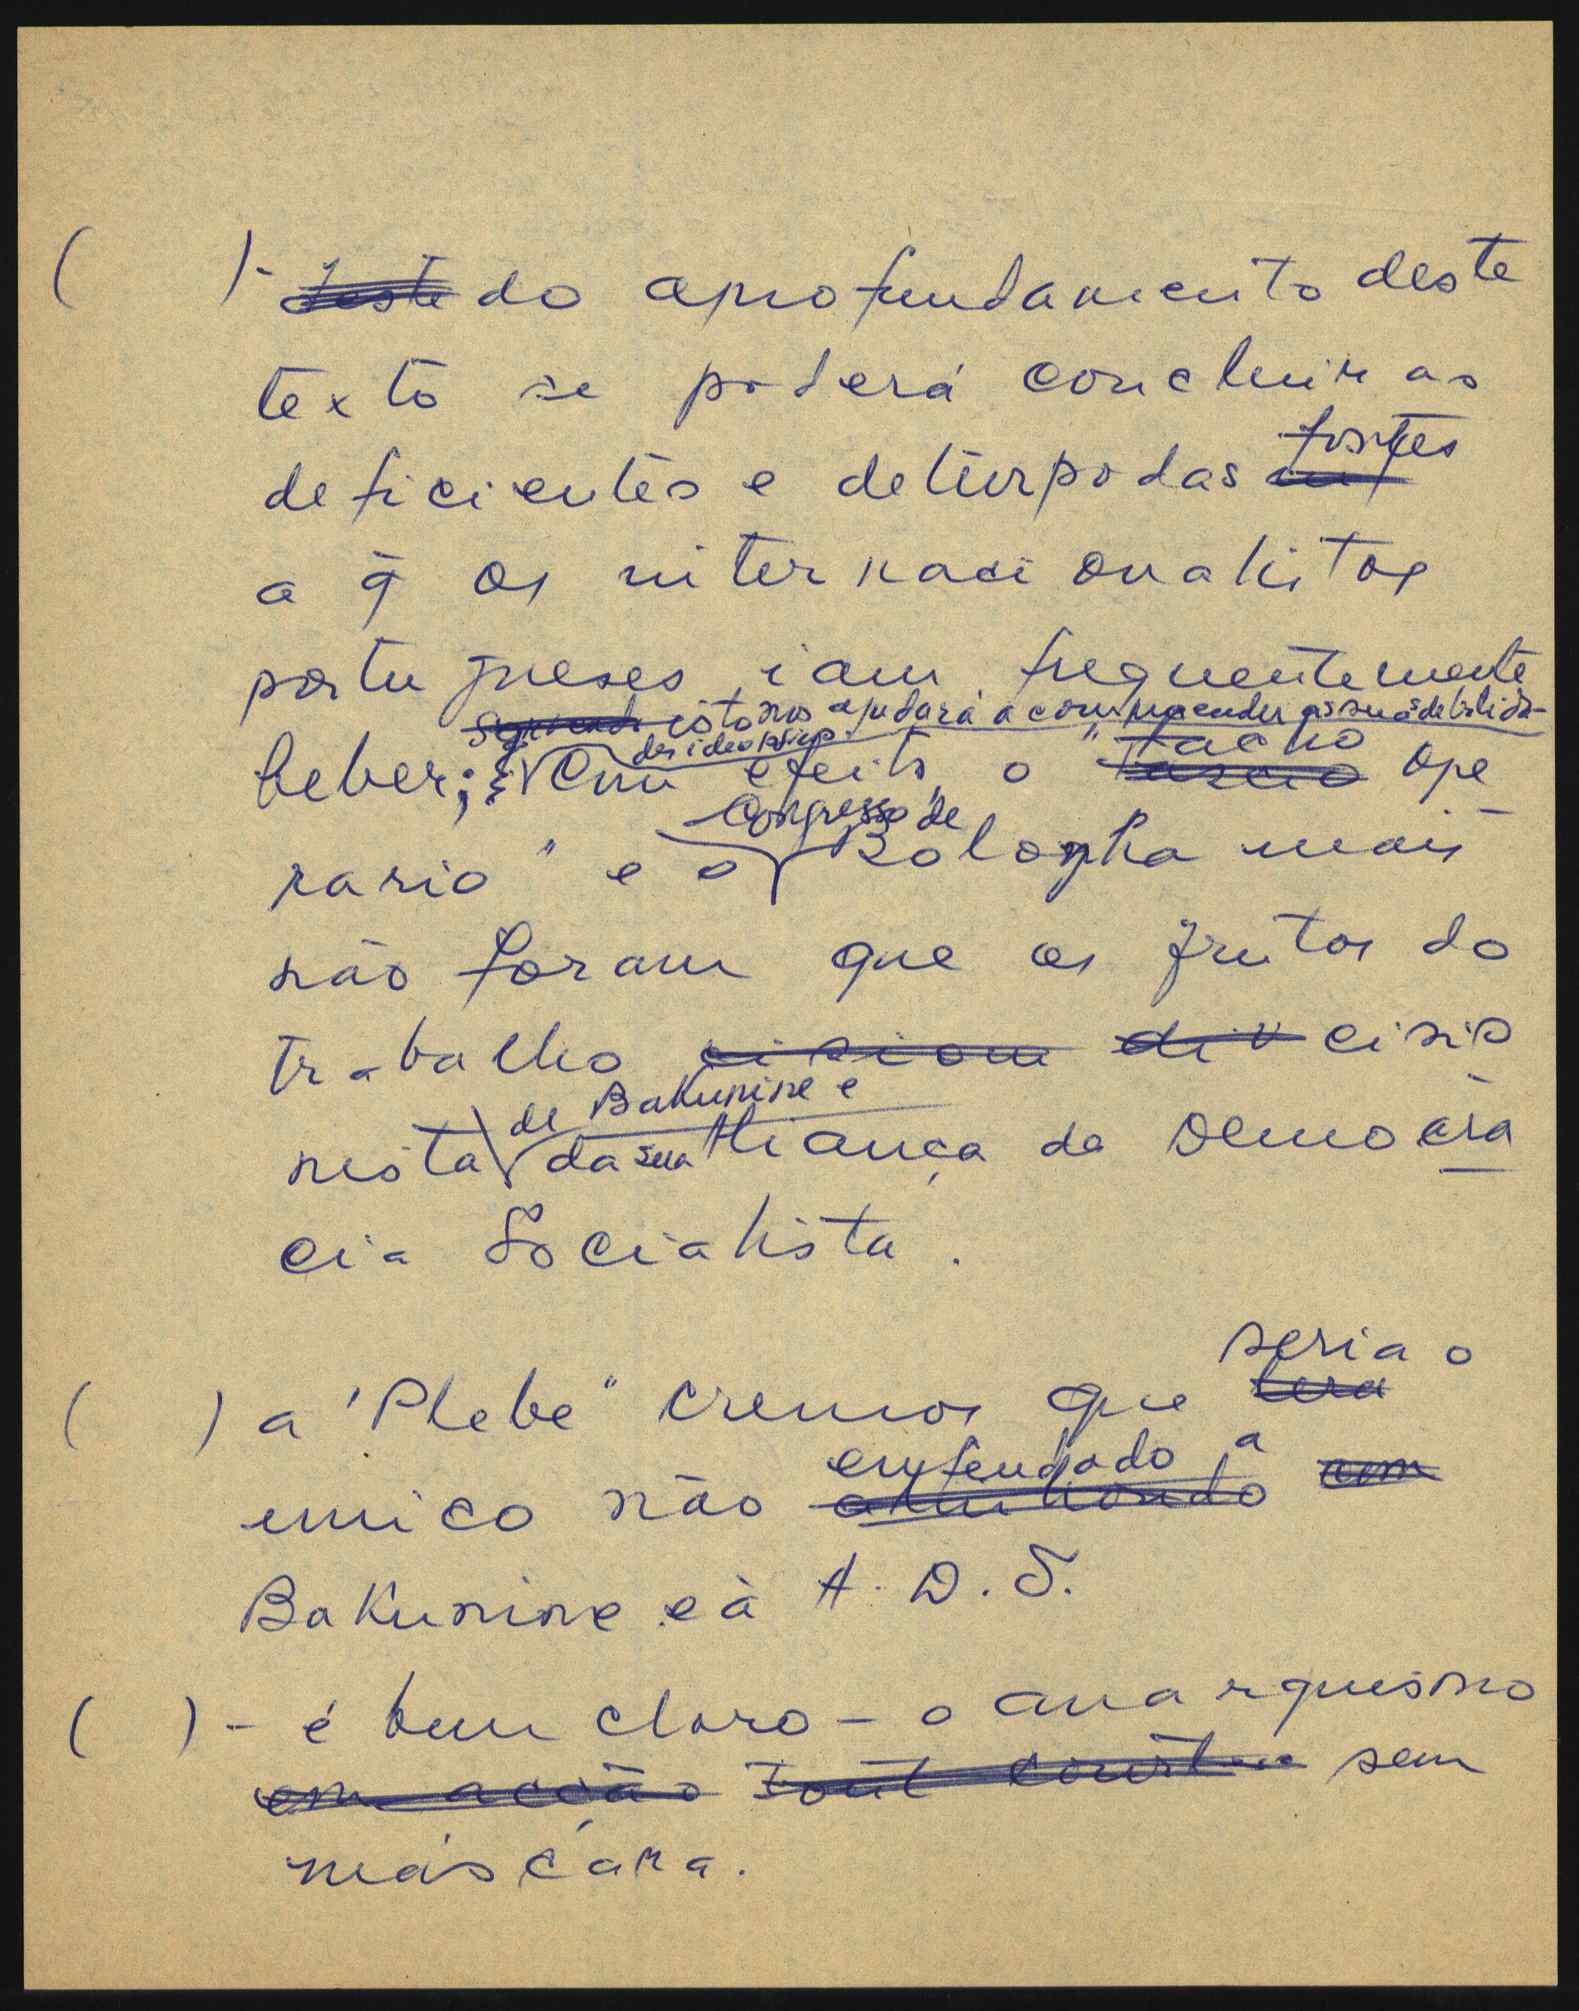 ( )- do aprofundamento deste
texto se poderá concluir as
fontes
deficientes e deturpadas
a q̄ os internacionalistas
portugueses iam frequentemente
isto nos ajudará a compreender as suas debilida-
des ideológicas.
facho
beber; Com efeito, o " ope
Congresso de
rario" e o Bolonha mais
não foram que os frutos do
trabalho cisio
de Bakunine e
nista da sua Aliança da Democra
cia Socialista.
seria o
( ) a "Plebe" cremos que
enfeudado a
unico não
Bakunine e à A. D. S.
( )- é bem claro - o anarquismo
em acção tout court sem
máscara.